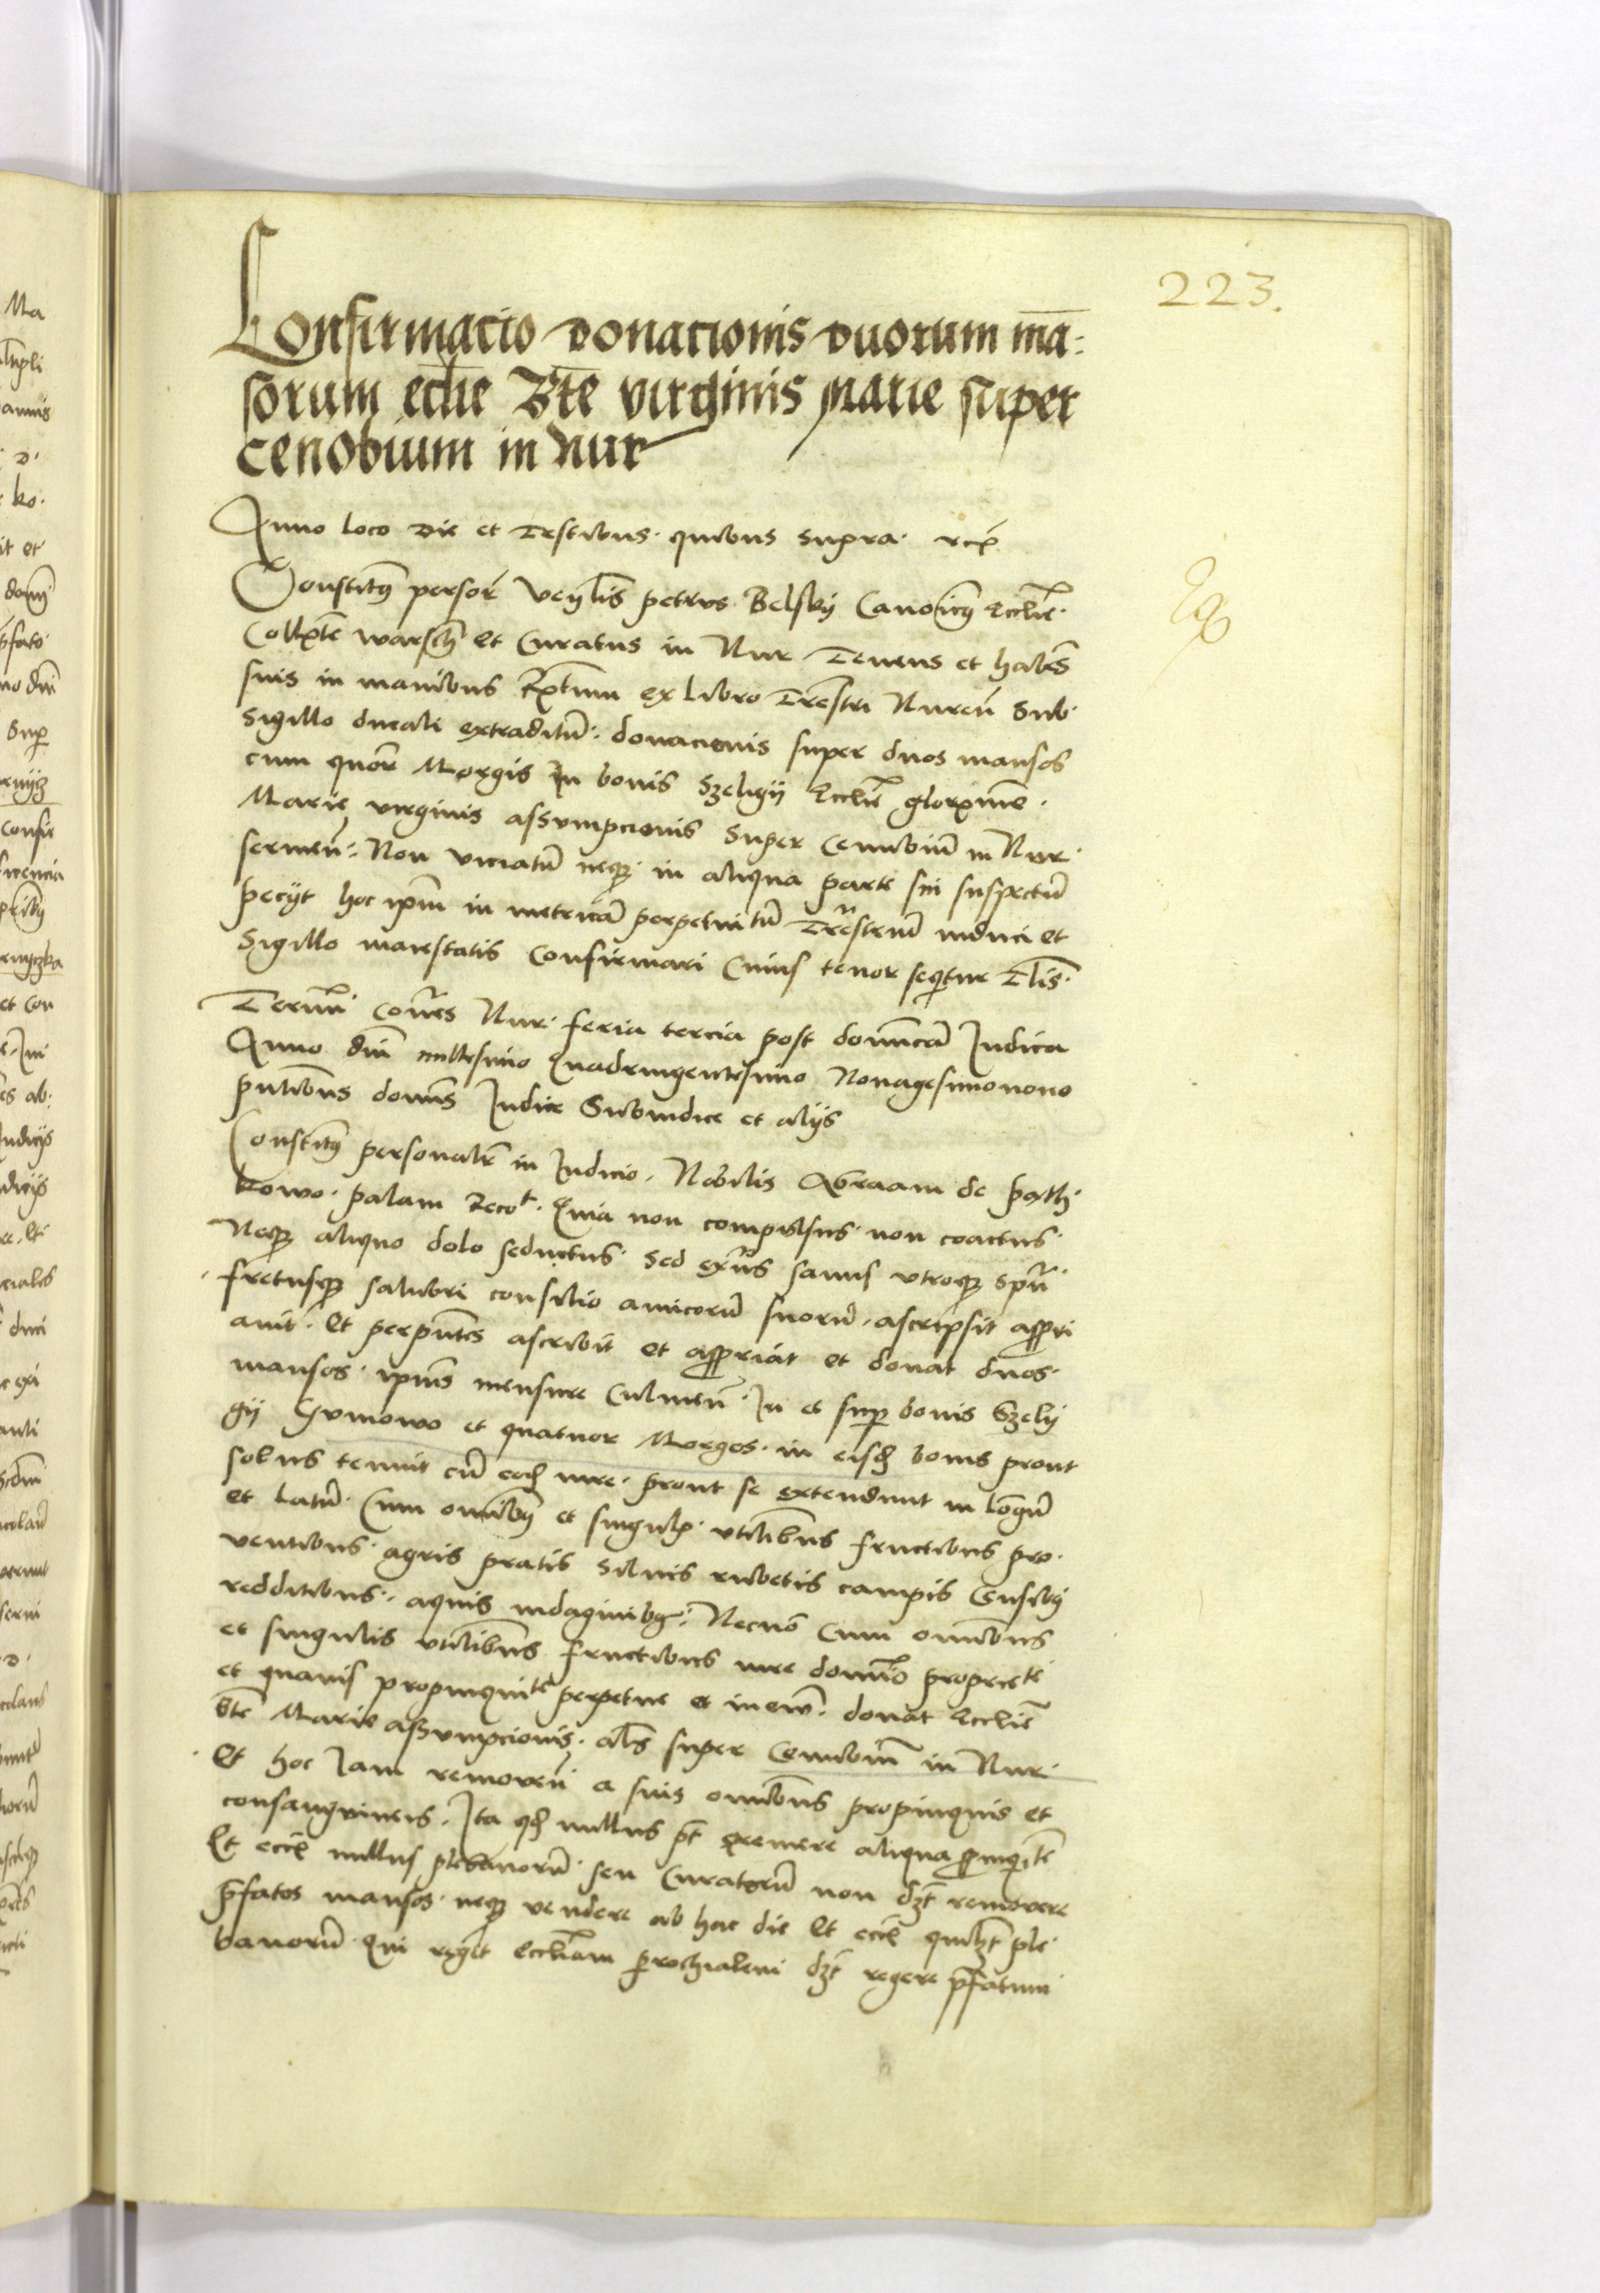 223.
Confirmacio donacionis duorum mā-
sorum eclie Bte virginis marie super
cenobium in nur
Anno loco die et testibus quibus supra
Constitus person Venlis petrus Belsky Canoicus Ecclie
Collxte warsch et Curatus in Nur Tenens et habes
suis in manibus ex libro Trestri Nuren sub
Sigillo ducali extraditu donacionis super duos mansos
cum quor Morgis In bonis Szeligij Ecclie
Marie virginis assumpcionis super Cenobiu in Nur
sermen Non viciatu neqz in aliqua parte sui suspectu
peciit hoc ipm in metrica perpetuitu Trestriu induci et
Sigillo maiestatis Confirmari Cuius tenor sequitur Tlis
Termi Coes Nur feria tercia post dominica Iudica
Anno dni millesimo Quadringentesimo Nonagesimonono
pntibus domis Iudice Subiudice et alijs
Constitus personalr in Iudicio Nobilis Abraam de path
kowo palam Recot Quia non compulsus non coactus
Neqz aliquo dolo seductus Sed exns sanus utroqz
fretusqz salubri consilio amicoru suoru ascripsit appri
auit Et perpntes ascribit et appriat et donat duos
mansos ipius mensure Culmen In et sup bonis Szelij
gij Gumowo et quatuor Morgos in eisd bonis prout
solus tenuit cu eod iure prout se extendunt in longu
et latu Cum omibus et singulis utilibus fructibus pro
uentibus agris pratis siluis rubetis campis Censibus
redditibus aquis indaginibus Necno Cum omibus
et singulis utilibus fructibus iure domio propriete
et quauis propinquite perpetue et donat Ecclie
bte Marie assumpcionis als super Cenobium in Nur
Et hoc Iam remouen a suis omibus propinquis et
consanguineis Ita qd nullus pt exemere aliqua
Et ecia nullus plebanoru seu Curatoru non dzt remouere
pfatos mansos neqz vendere ab hac die Et ecia ple
banoru Qui reget Eccliam prochialem dzt regere pfatum